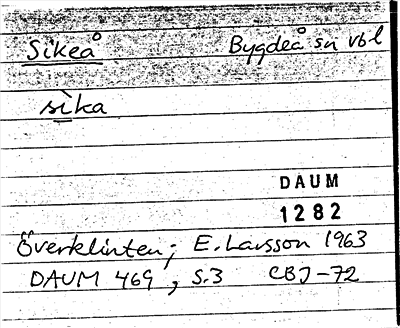 Sikeå Bygdeå sn vbl
sìka
DAUM
1282
Överklinten; E. Larsson 1963
DAUM 469, s.3 CBJ-72